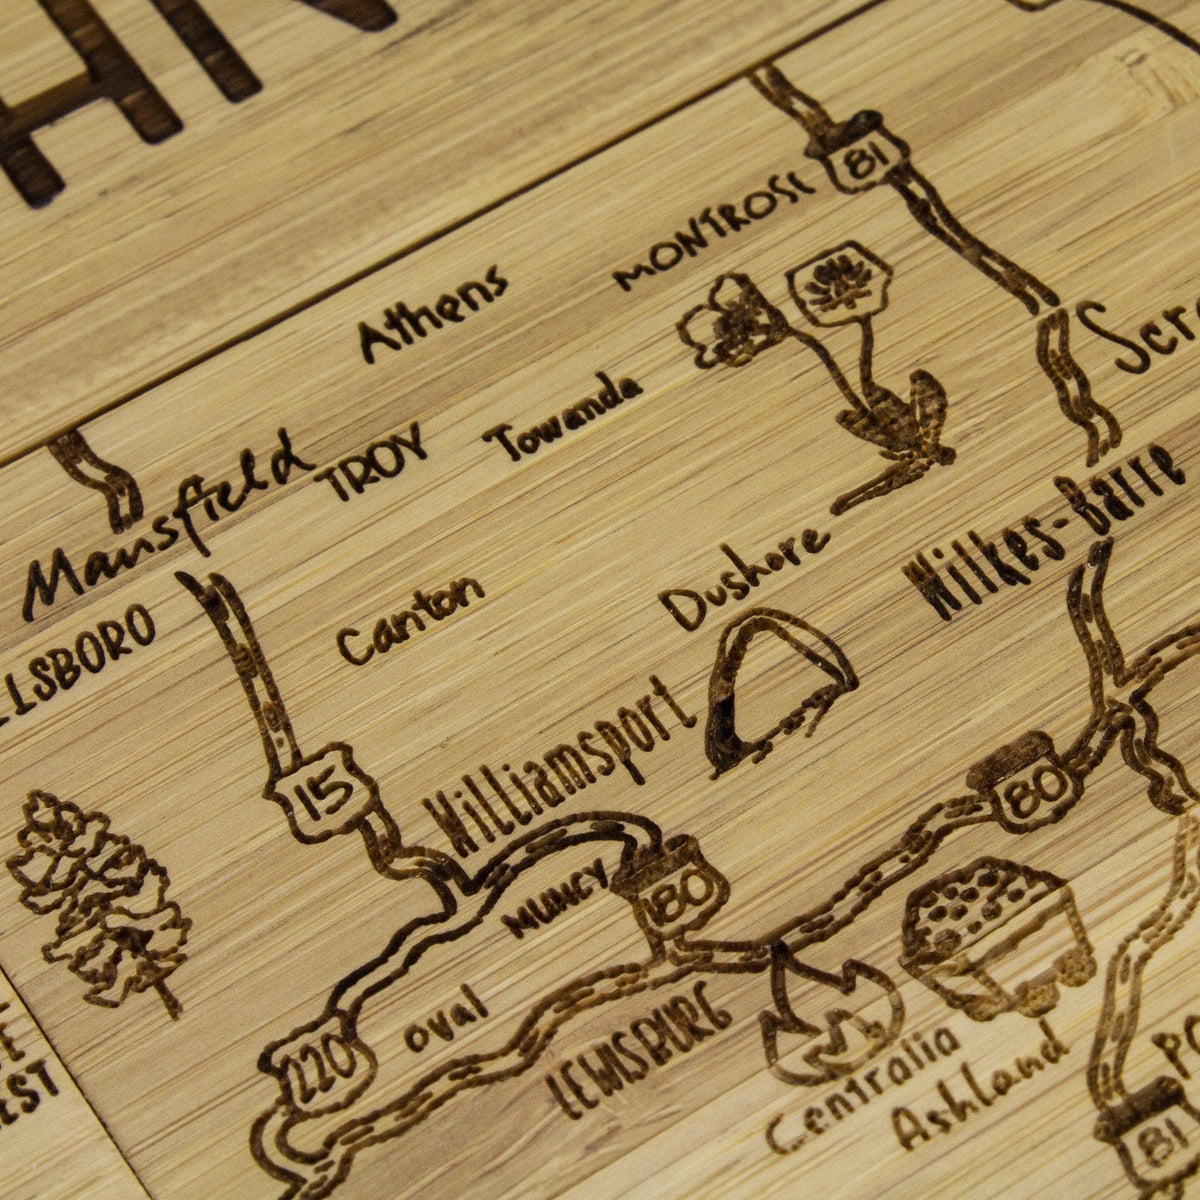 81
MONTROSE
Athens
Scr
Towanda
TROY
Mansfield
Wilkes-Barre
Dushore
Canton
LLSBORO
Williamsport
15
80
MUNCY
180
Oval
LEWISBURG
220
Centralia
Ashland
EST
81